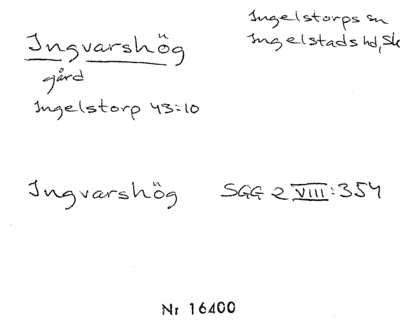 Ingelstorps sn
Ingelstads hd, Sk
Ingvarshög
gård
Ingelstorp 43:10
Ingvarshög SGG 2 VIII:354
Nr 16400